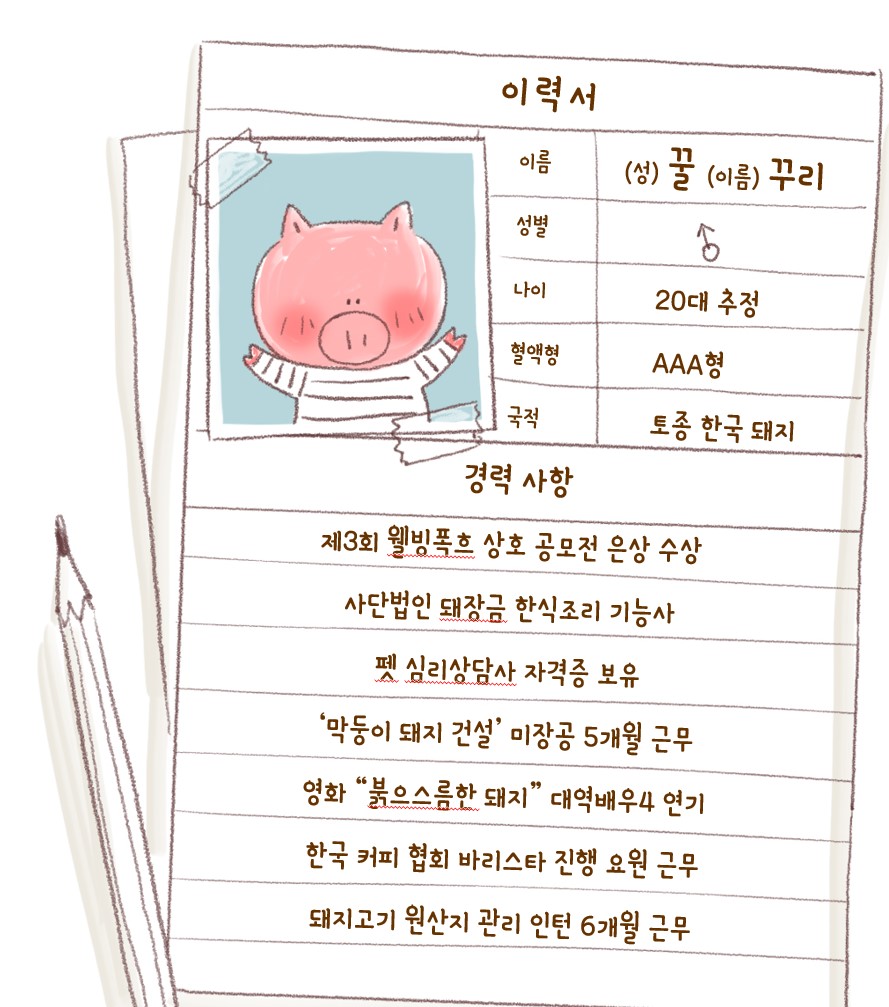 이력서
이름 (성) 꿀 (이름) 꾸리
성별 ♂
나이 20대 추정
혈액형 AAA형
국적 토종 한국 돼지
경력 사항
제3회 웰빙폭흐 상호 공모전 은상 수상
사단법인 돼장금 한식조리 기능사
펫 심리상담사 자격증 보유
‘막둥이 돼지 건설’ 미장공 5개월 근무
영화 “붉으스름한 돼지” 대역배우4 연기
한국 커피 협회 바리스타 진행 요원 근무
돼지고기 원산지 관리 인턴 6개월 근무